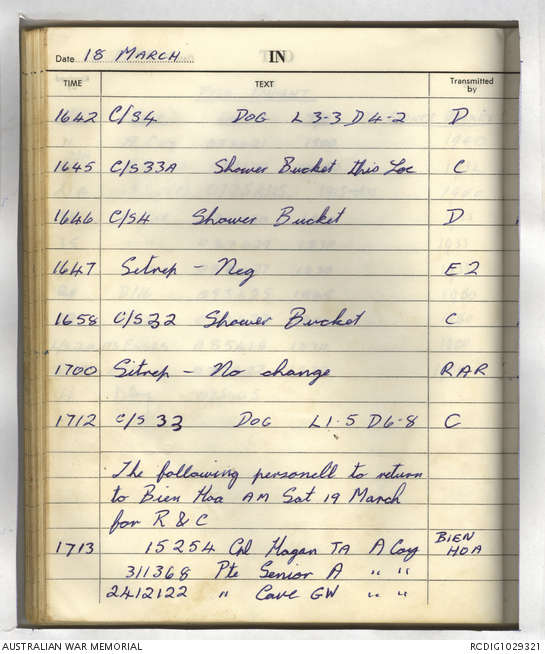 Date 18 MARCH IN
TIME TEXT Transmitted by
1642 C/S4 DOG L 3-3 D 4-2 D
1645 C/S33A Shower Bucket this Loc C
1646 C/S4 Shower Bucket D
1647 Sitrep - Neg E2
1658 C/S32 Shower Bucket C
1700 Sitrep - No change RAR
1712 C/S 33 DOG L1-5 D6-8 C
The following personell to return
to Bien Hoa AM Sat 19 March
for R & C
1713 15254 Cpl Hagan TA A Coy BIEN HOA
311368 Pte Senior A " "
2412122 " Cave GW " "
AUSTRALIAN WAR MEMORIAL RCDIG1029321